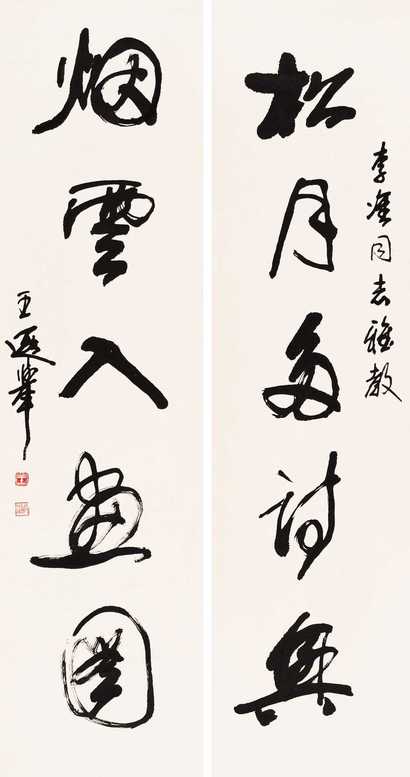 松月多诗兴
李準同志雅教
烟云入画图
王遐举